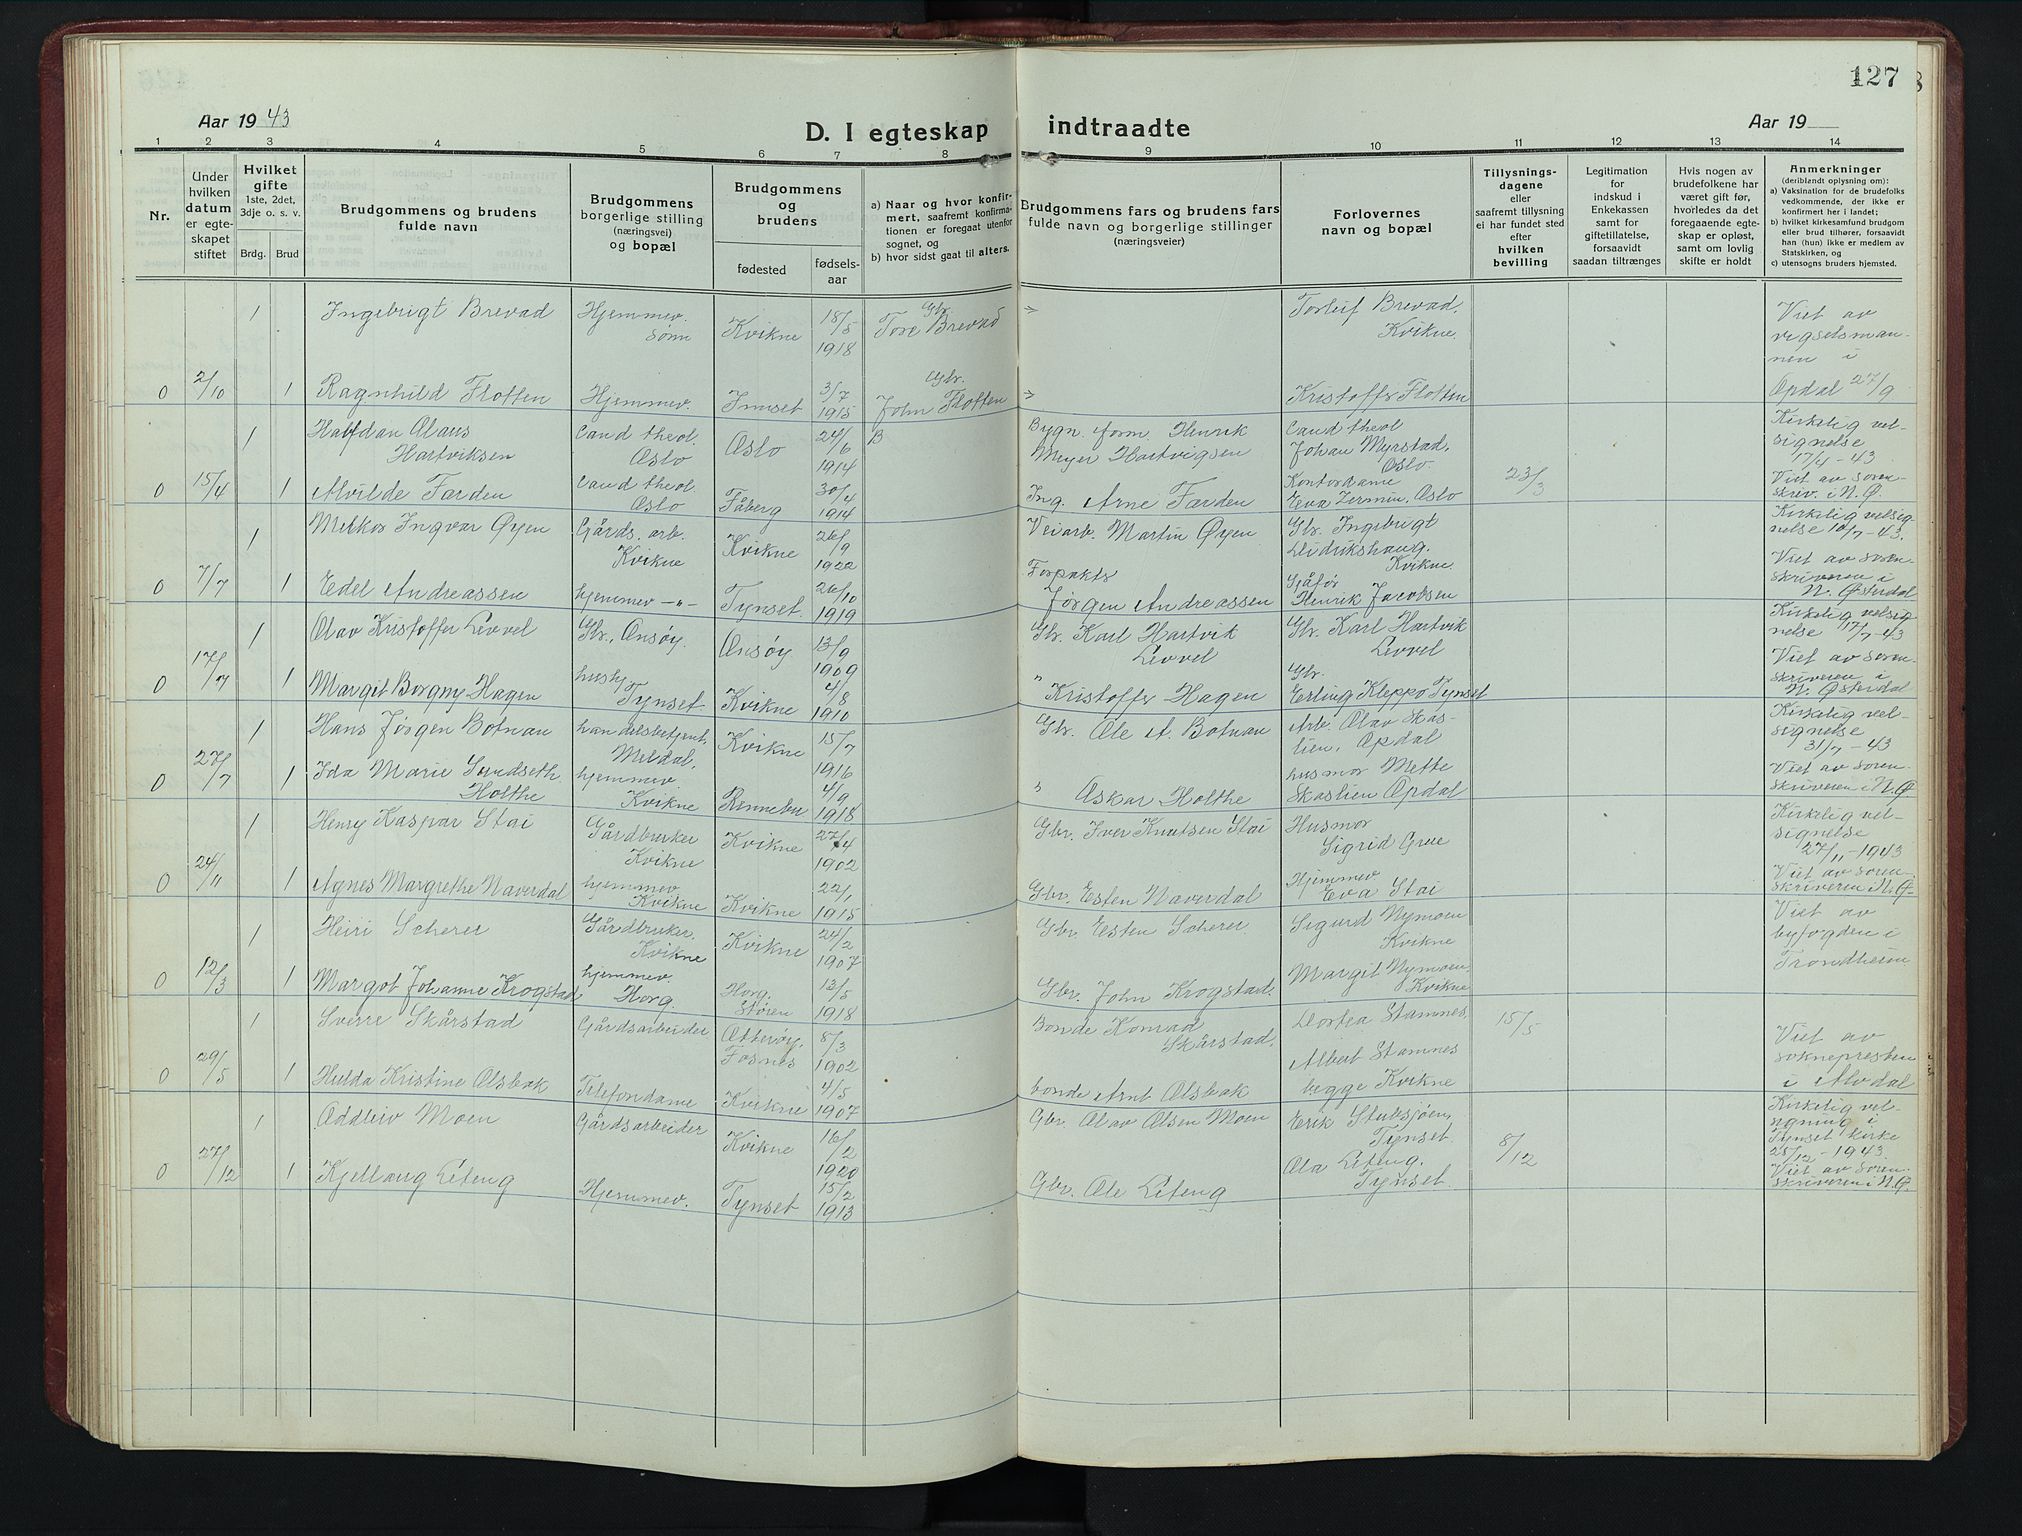 127
Aar 1943
D. I egteskap indtraadte
Aar 19
1 2 3 4 5 6 7 8 9 10 11 12 13 14
Nr.
Under
hvilken
datum
er egte-
skapet
stiftet
Hvilket
gifte
1ste, 2det,
3dje o. s. v.
Brdg. Brud
Brudgommens og brudens
fulde navn
Brudgommens
borgerlige stilling
(næringsvei)
og bopæl
Brudgommens
og
brudens
fødested
fødsels-
aar
a) Naar og hvor konfir-
mert, saafremt konfirma-
tionen er foregaat utenfor
sognet, og
b) hvor sidst gaat til alters.
Brudgommens fars og brudens fars
fulde navn og borgerlige stillinger
(næringsveier)
Forlovernes
navn og bopæl
Tillysnings-
dagene
eller
saafremt tillysning
ei har fundet sted
efter
hvilken
bevilling
Legitimation
for
indskud i
Enkekassen
samt for
giftetillatelse,
forsaavidt
saadan tiltrænges
Hvis nogen av
brudefolkene har
været gift før,
hvorledes da det
foregaaende egte-
skap er opløst,
samt om lovlig
skifte er holdt
Anmerkninger
(deriblandt oplysning om):
a) Vaksination for de brudefolks
vedkommende, der ikke er
konfirmert her i landet;
b) hvilket kirkesamfund brudgom
eller brud tilhører, forsaavidt
han (hun) ikke er medlem av
Statskirken, og
c) utensogns bruders hjemsted.
1 Ingebrigt Brevad Hjemmev. sønn Kvikne 18/5 1918 Gbr. Tore Brevad Torleif Brevad, Kvikne.
0 2/10 1 Ragnhild Flotten Hjemmev. Innset 3/7 1915 Gbr. John Flotten Kristoffer Flotten
Viet av
vigselsman-
nen i
Opdal 27/9
1 Halfdan Olaus Hartviksen Cand theol. Oslo Oslo 24/6 1914 B Bygn. form. Henrik Meyer Hartvigsen Cand theol Johan Myrstad, Oslo
0 15/4 1 Alvilde Færden Cand theol. Oslo Fåberg 30/4 1914 Ing. Arne Færden Kontordame Eva Oslo 23/3
Kirkelig vel-
signelse
17/4 - 43
Viet av soren-
skriv. i N. Ø.
1 Melkor Ingvar Øyen Gårds. arb. Kvikne Kvikne 26/9 1922 Veiarb. Martin Øyen Gbr. Ingebrigt Didrikshaug, Kvikne
0 7/7 1 Edel Andreassen hjemmev -"- Tynset 26/10 1919 Forpakter Jørgen Andreassen Henrik Jacobsen
Kirkelig velsig-
nelse 10/7 - 43.
Viet av soren-
skriveren i
N. Østerdal
1 Olav Kristoffer Levvel Gbr., Onsøy Onsøy 13/9 1909 Gbr. Karl Hartvik Levvel Gbr. Karl Hartvik Levvel
0 17/7 1 Margit Borgny Hagen hushj Tynset Kvikne 4/8 1910 " Kristoffer Hagen Gbr. Erling Kleppo Tynset
Kirkelig velsig-
nelse 17/7 - 43
Viet av soren-
skriveren i
N. Østerdal
1 Hans Jørgen Botnan handelsbetjent, Meldal, Kvikne 15/7 1916 Gbr. Ole A. Botnan Arb. Olav Skas-lien, Opdal
0 27/7 1 Ida Marie Sundseth Holthe hjemmev Kvikne Rennebu 4/9 1918 " Oskar Holthe husmor Mette Skaslien Opdal
Kirkelig vel-
signelse
31/7 - 43
Viet av soren-
skriveren i N. Ø.
1 Henry Kaspar Stai Gårdbruker Kvikne Kvikne 27/4 1902 Gbr. Iver Knutsen Stai Husmor Sigrid Grue
0 24/11 1 Agnes Margrethe Naverdal hjemmev Kvikne Kvikne 22/1 1915 Gbr. Esten Naverdal Hjemmev Eva Stai
Kirkelig vel-
signelse
27/11 - 1943
Viet av soren-
skriveren N. Ø.
1 Heiri Scherer Gårdbruker, Kvikne Kvikne 24/2 1907 Gbr. Esten Scherer Sigurd Nymoen Kvikne
0 12/3 1 Margot Johanne Krogstad hjemmev. Horg. Horg. Støren 13/5 1918 Gbr. John Krogstad. Margit Nymoen, Kvikne
Viet av
byfogden i
Trondheim
1 Sverre Skårstad Gårdsarbeider Otterøy, Fosnes 8/3 1902 Bonde Konrad Skårstad. Dortea Stamnes, 15/5
0 29/5 1 Hulda Kristine Olsbak Telefondame Kvikne 4/5 1907 bonde Arnt Olsbak Albert Stamnes begge Kvikne
Viet av
soknepresten
i Alvdal
1 Oddleiv Moen Gårdsarbeider Kvikne 16/2 1920 Gbr. Olav Olsen Moen Erik Stubsjøen, Tynset 8/12
0 27/12 1 Kjellaug Liteng Hjemmev. Tynset 15/2 1913 Gbr. Ole Liteng Ola Liteng, Tynset.
Kirkelig vel-
signing i
Tynset kirke
28/12 - 1943.
Viet av soren-
skriveren i N. Ø.